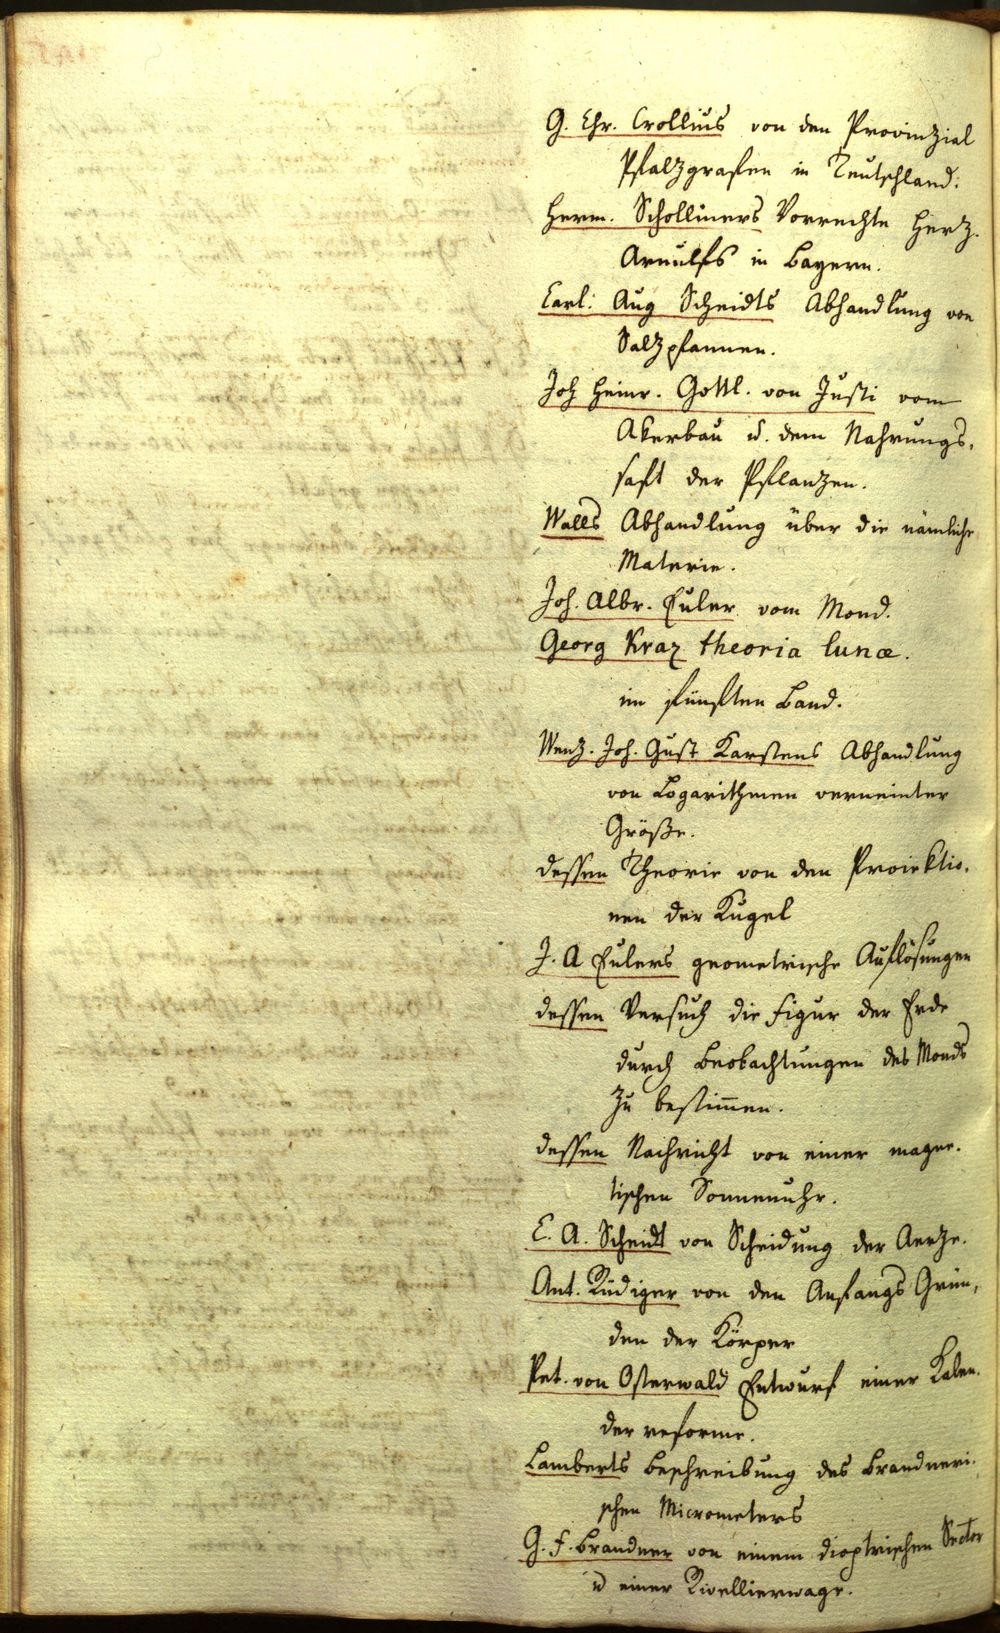 G. Chr. Crollius von den Provinzial
Pfalzgrafen in Teutschland.
Herm. Scholliners Vorrechte Herz.
Arnulfs in Bayern.
Carl: Aug Scheidts Abhandlung von
Salzpfannen.
Joh Heinr. Gottl. von Justi vom
Akerbau u. dem Nahrungs-
saft der Pflanzen.
Walls Abhandlung über die nämliche
Materie.
Joh. Albr. Euler vom Mond.
Georg Kraz theoria lunæ.
im fünften Band.
Wenz. Joh. Gust Karstens Abhandlung
von Logarithmen verneinter
Größe.
dessen Theorie von den Proiektio-
nen der Kugel
J. A Eulers geometrische Auflösungen
dessen Versuch die Figur der Erde
durch Beobachtungen des Monds
zu bestimmen.
dessen Nachricht von einer magne-
tischen Sonnenuhr.
C. A. Scheidt von Scheidung der Aerze.
Ant. Rüdiger von den Anfangs Grün-
den der Körper
Pet. von Osterwald Entwurf einer Kalen-
der reforme.
Lamberts Beschreibung des Brandneri-
schen Micrometers
G. F. Brandner von einem dioptrischen Sector
u einer Nivellierwage.